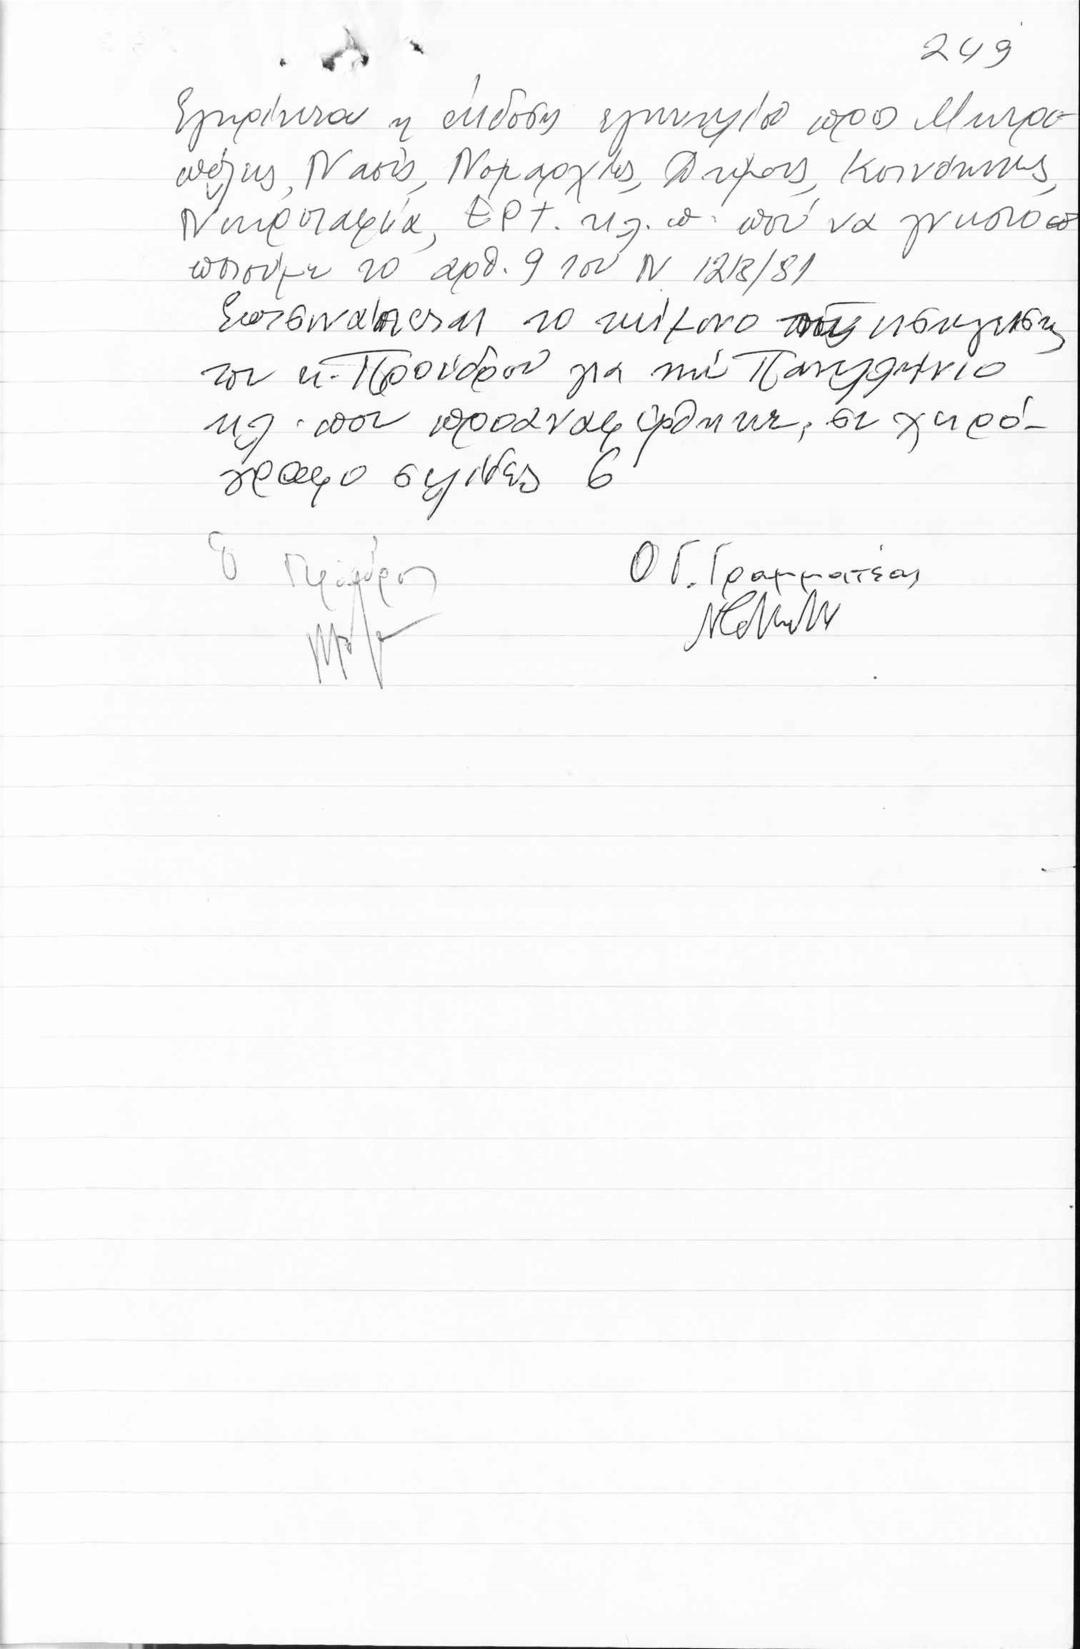 249
Εγκρίνεται η έκδοση εγκυκλίου προς Μητρο-
πόλεις, Ναούς, Νομαρχίες, Δήμους, Κοινότητες,
Νεκροταφεία, ΕΡΤ. κλ.π. που να γνωστο
ποιούμε το αρθ. 9 του Ν 1218/81
Επισυνάπτεται το κείμενο της εισηγησης
του κ. Προέδρου για την Πανελλήνιο
κλ. που προαναφέρθηκε, σε χειρό-
γραφο σελίδες 6
Ο Πρόεδρος
Ο Γ. Γραμματέας